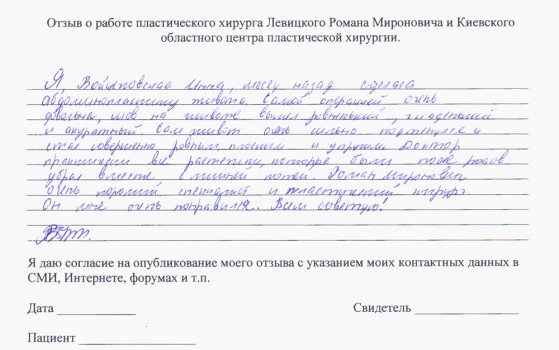 Отзыв о работе пластического хирурга Левицкого Романа Мироновича и Киевского
областного центра пластической хирургии.
Я, Инна, месяц назад сделала
абдоминопластику живота. Самой операцией очень
довольна, шов на животе вышел ровненький,
и аккуратный. Сам живот очень сильно подтянулся и
стал совершенно ровным, плоским и упругим. Доктор
практически все растяжки, которые были после родов
убрал вместе с лишней кожей. Роман Миронович
очень хороший специалист и пластический хирург.
Он мне очень понравился. Всем советую!
Я даю согласие на опубликование моего отзыва с указанием моих контактных данных в
СМИ, Интернете, форумах и т.п.
Дата Свидетель
Пациент